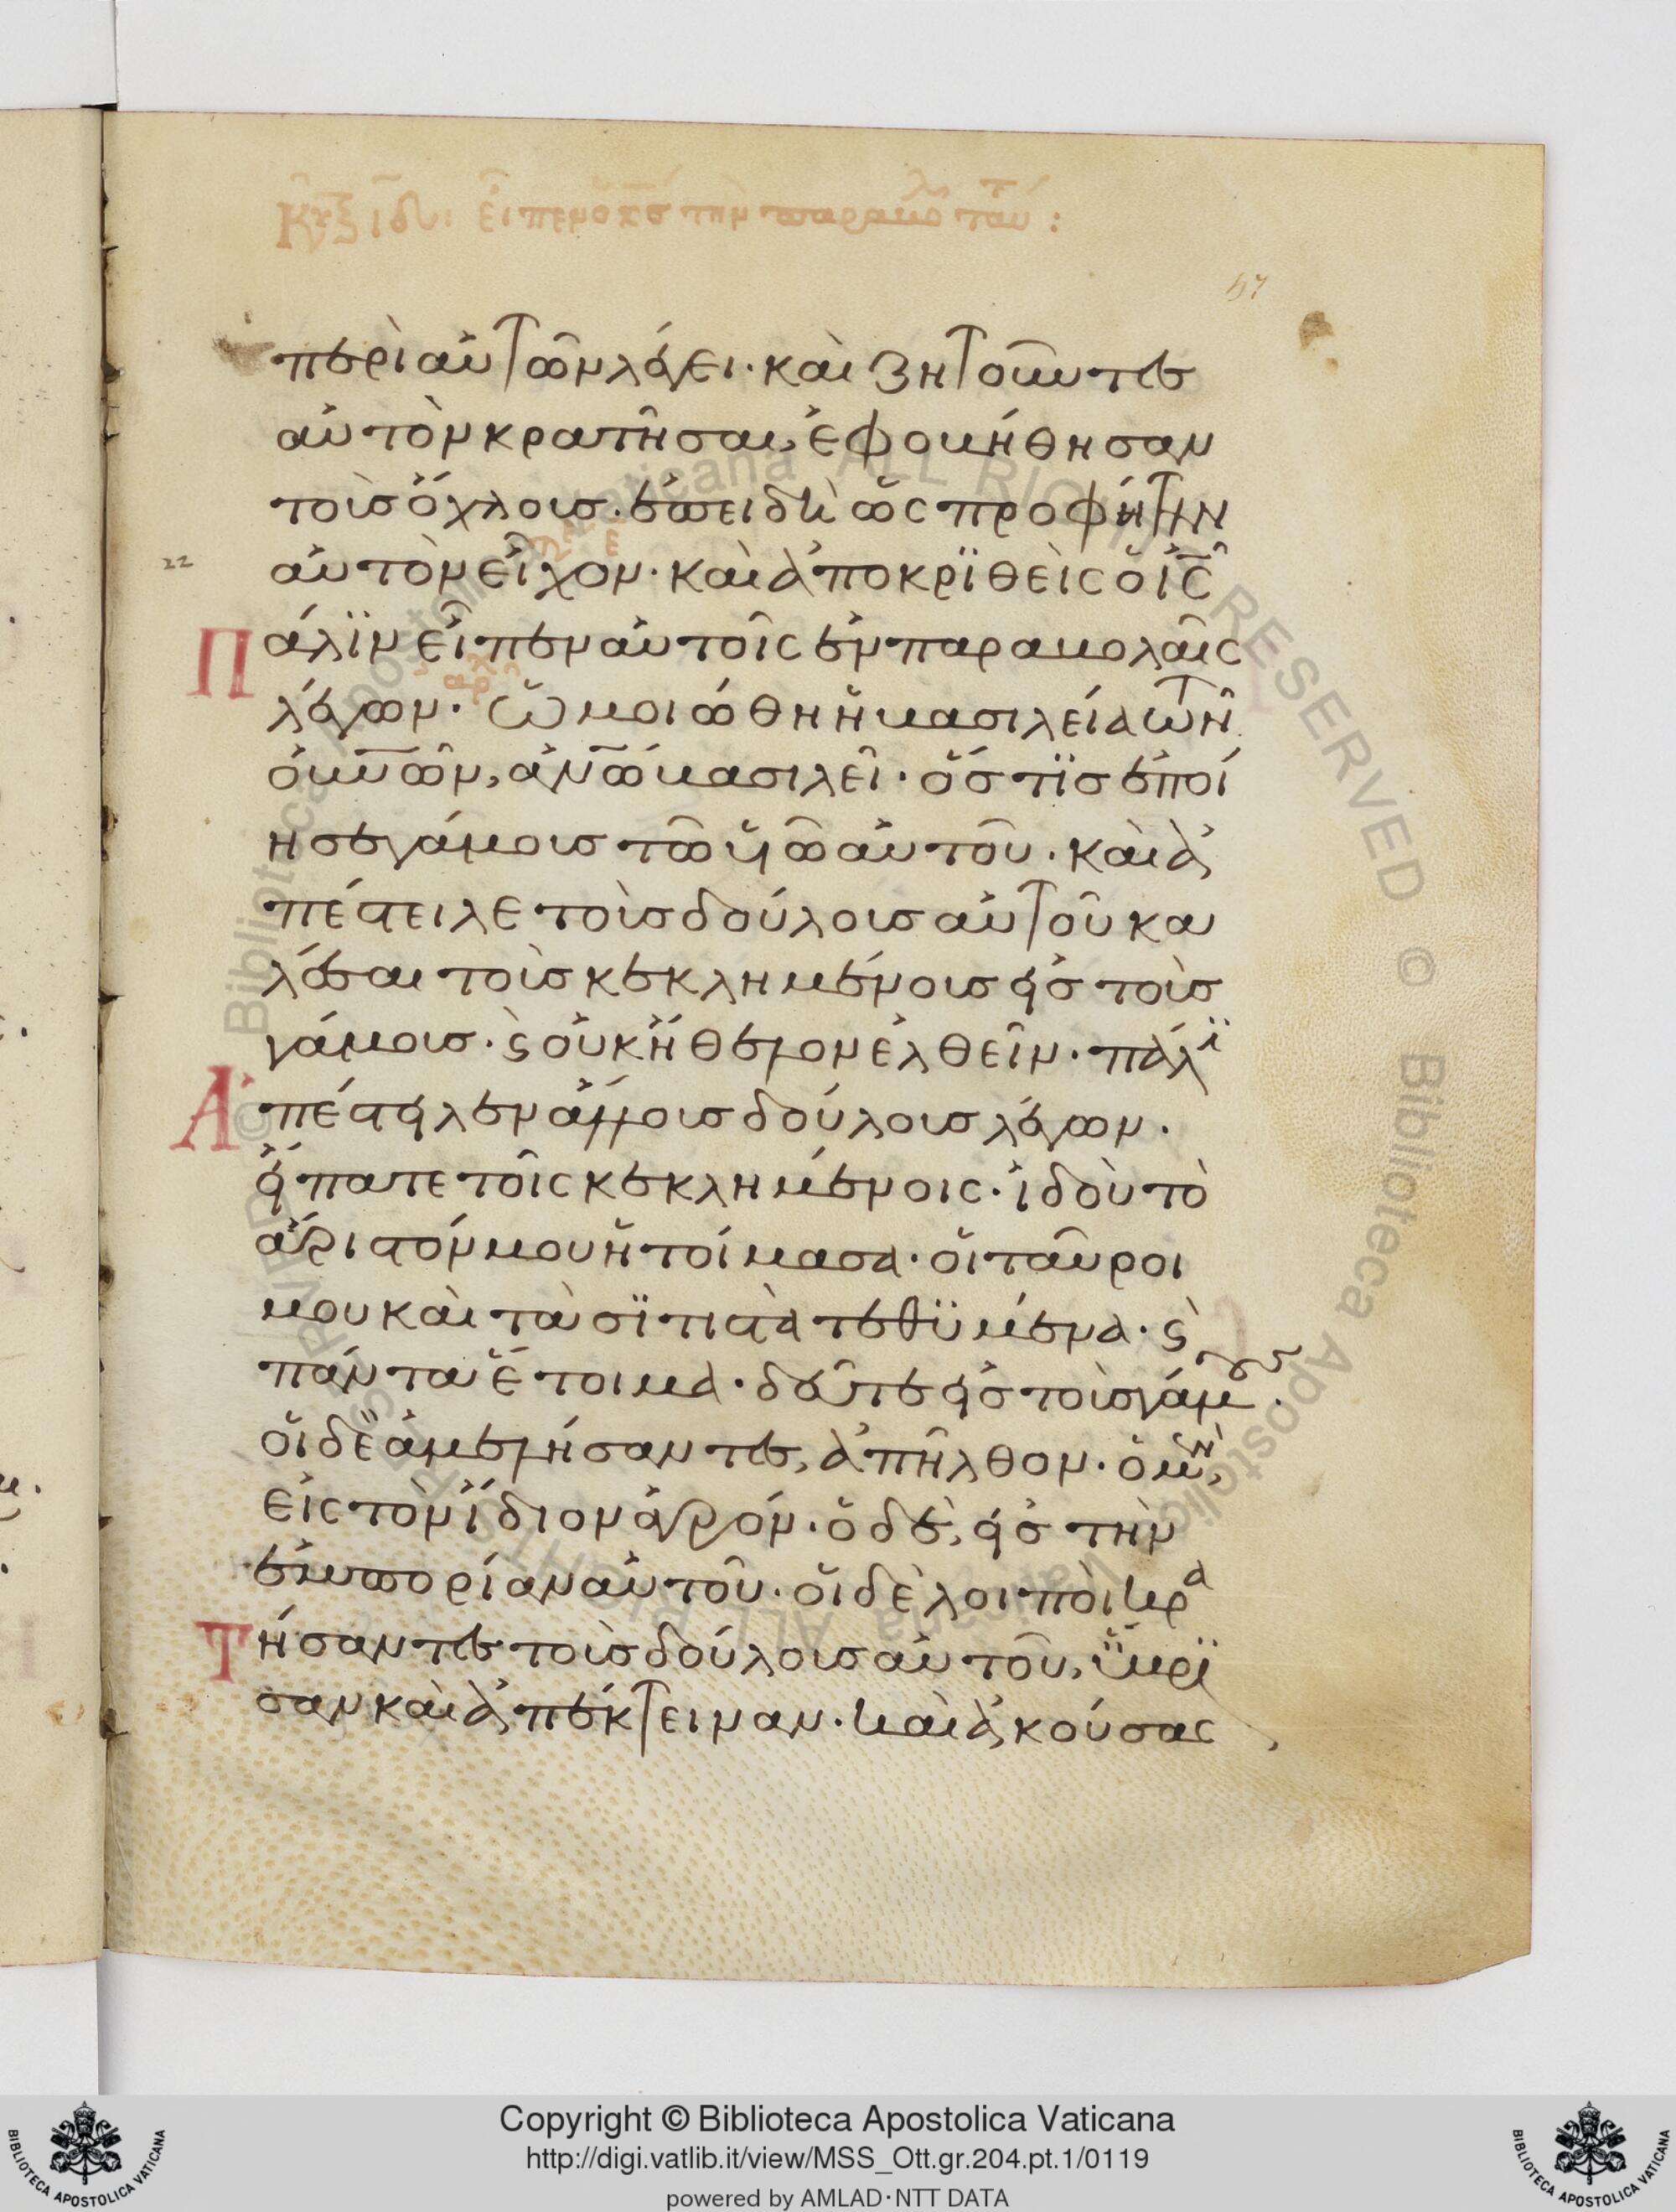 Κυ ξ ιδʹ: εἶπεν ὁ κς τὴν παραβολ ταύτ:
57
περὶ αὐτῶν λέγει· καὶ ζητοῦντες
αὐτὸν κρατῆσαι, ἐφοβήθησαν
τοὺς ὄχλους· ἐπειδὴ ὡς προφήτην
22
αὐτὸν εἶχον· καὶ ἀποκρϊθεὶς ὁ ις
Πάλϊν εἶπεν αὐτοῖς ἐν παραβολαῖς
λέγων· ὡμοιώθη ἡ βασιλεία τῶν
οὐνῶν, ἀνω βασιλεῖ· ὅστϊς ἐποί
ησε γάμους τῶ υἱῶ αὐτοῦ· καὶ ἀ
πέστειλε τοὺς δούλους αὐτοῦ κα
λέσαι τοὺς κεκλημένους εἰς τοὺς
γάμους· ϛ οὐκ ἤθελον ἐλθεῖν· πάλϊ
Ἀπέστειλεν ἄλλους δούλους λέγων·
εἴπατε τοῖς κεκλημένοις· ἰδοὺ τὸ
ἄριστόν μου ἡτοίμασα· οἱ ταῦροι
μου καὶ τὰ σϊτιστὰ τεθϋμένα· ϛ
πάντα ἕτοιμα· δεῦτε εἰς τοὺς γάμους·
οἱ δὲ ἀμελήσαντες, ἀπῆλθον· ὁ μὲν,
εἰς τὸν ἴδιον ἀγρόν· ὁ δὲ, εἰς τὴν
ἐμπορίαν αὐτοῦ· οἱ δὲ λοιποὶ κρα
Τήσαντες τοὺς δούλους αὐτοῦ, ὕβρϊ
σαν καὶ ἀπέκτειναν· καὶ ἀκούσας
Copyright © Biblioteca Apostolica Vaticana
http://digi.vatlib.it/view/MSS_Ott.gr.204.pt.1/0119
powered by AMLAD·NTT DATA
BIBLIOTECA APOSTOLICA VATICANA
BIBLIOTECA APOSTOLICA VATICANA